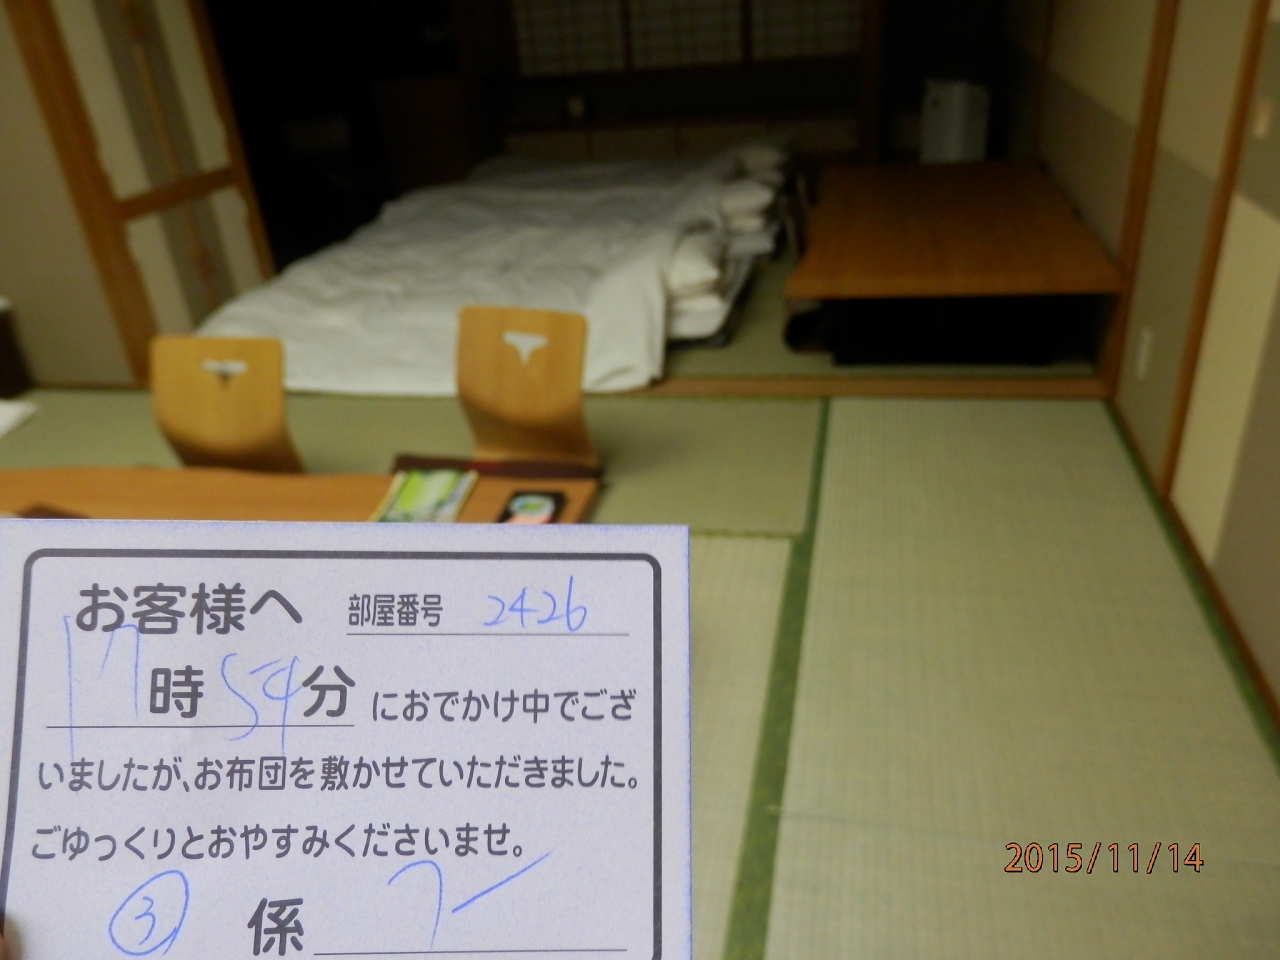 お客様へ 部屋番号 2426
17時54分におでかけ中でござ
いましたが、お布団を敷かせていただきました。
ごゆっくりとおやすみくださいませ。
③ 係
2015/11/14